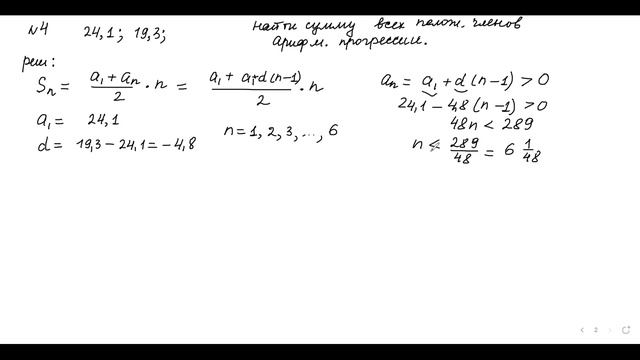 №4 24,1; 19,3; найти сумму всех полож. членов
арифм. прогрессии.
реш:
Sₙ = (a₁ + aₙ)/2 · n = (a₁ + a₁+d(n−1))/2 · n
a₁ = 24,1
d = 19,3 − 24,1 = −4,8
n = 1, 2, 3, ..., 6
aₙ = a₁ + d(n−1) > 0
24,1 − 4,8(n−1) > 0
48n < 289
n < 289/48 = 6 1/48
2